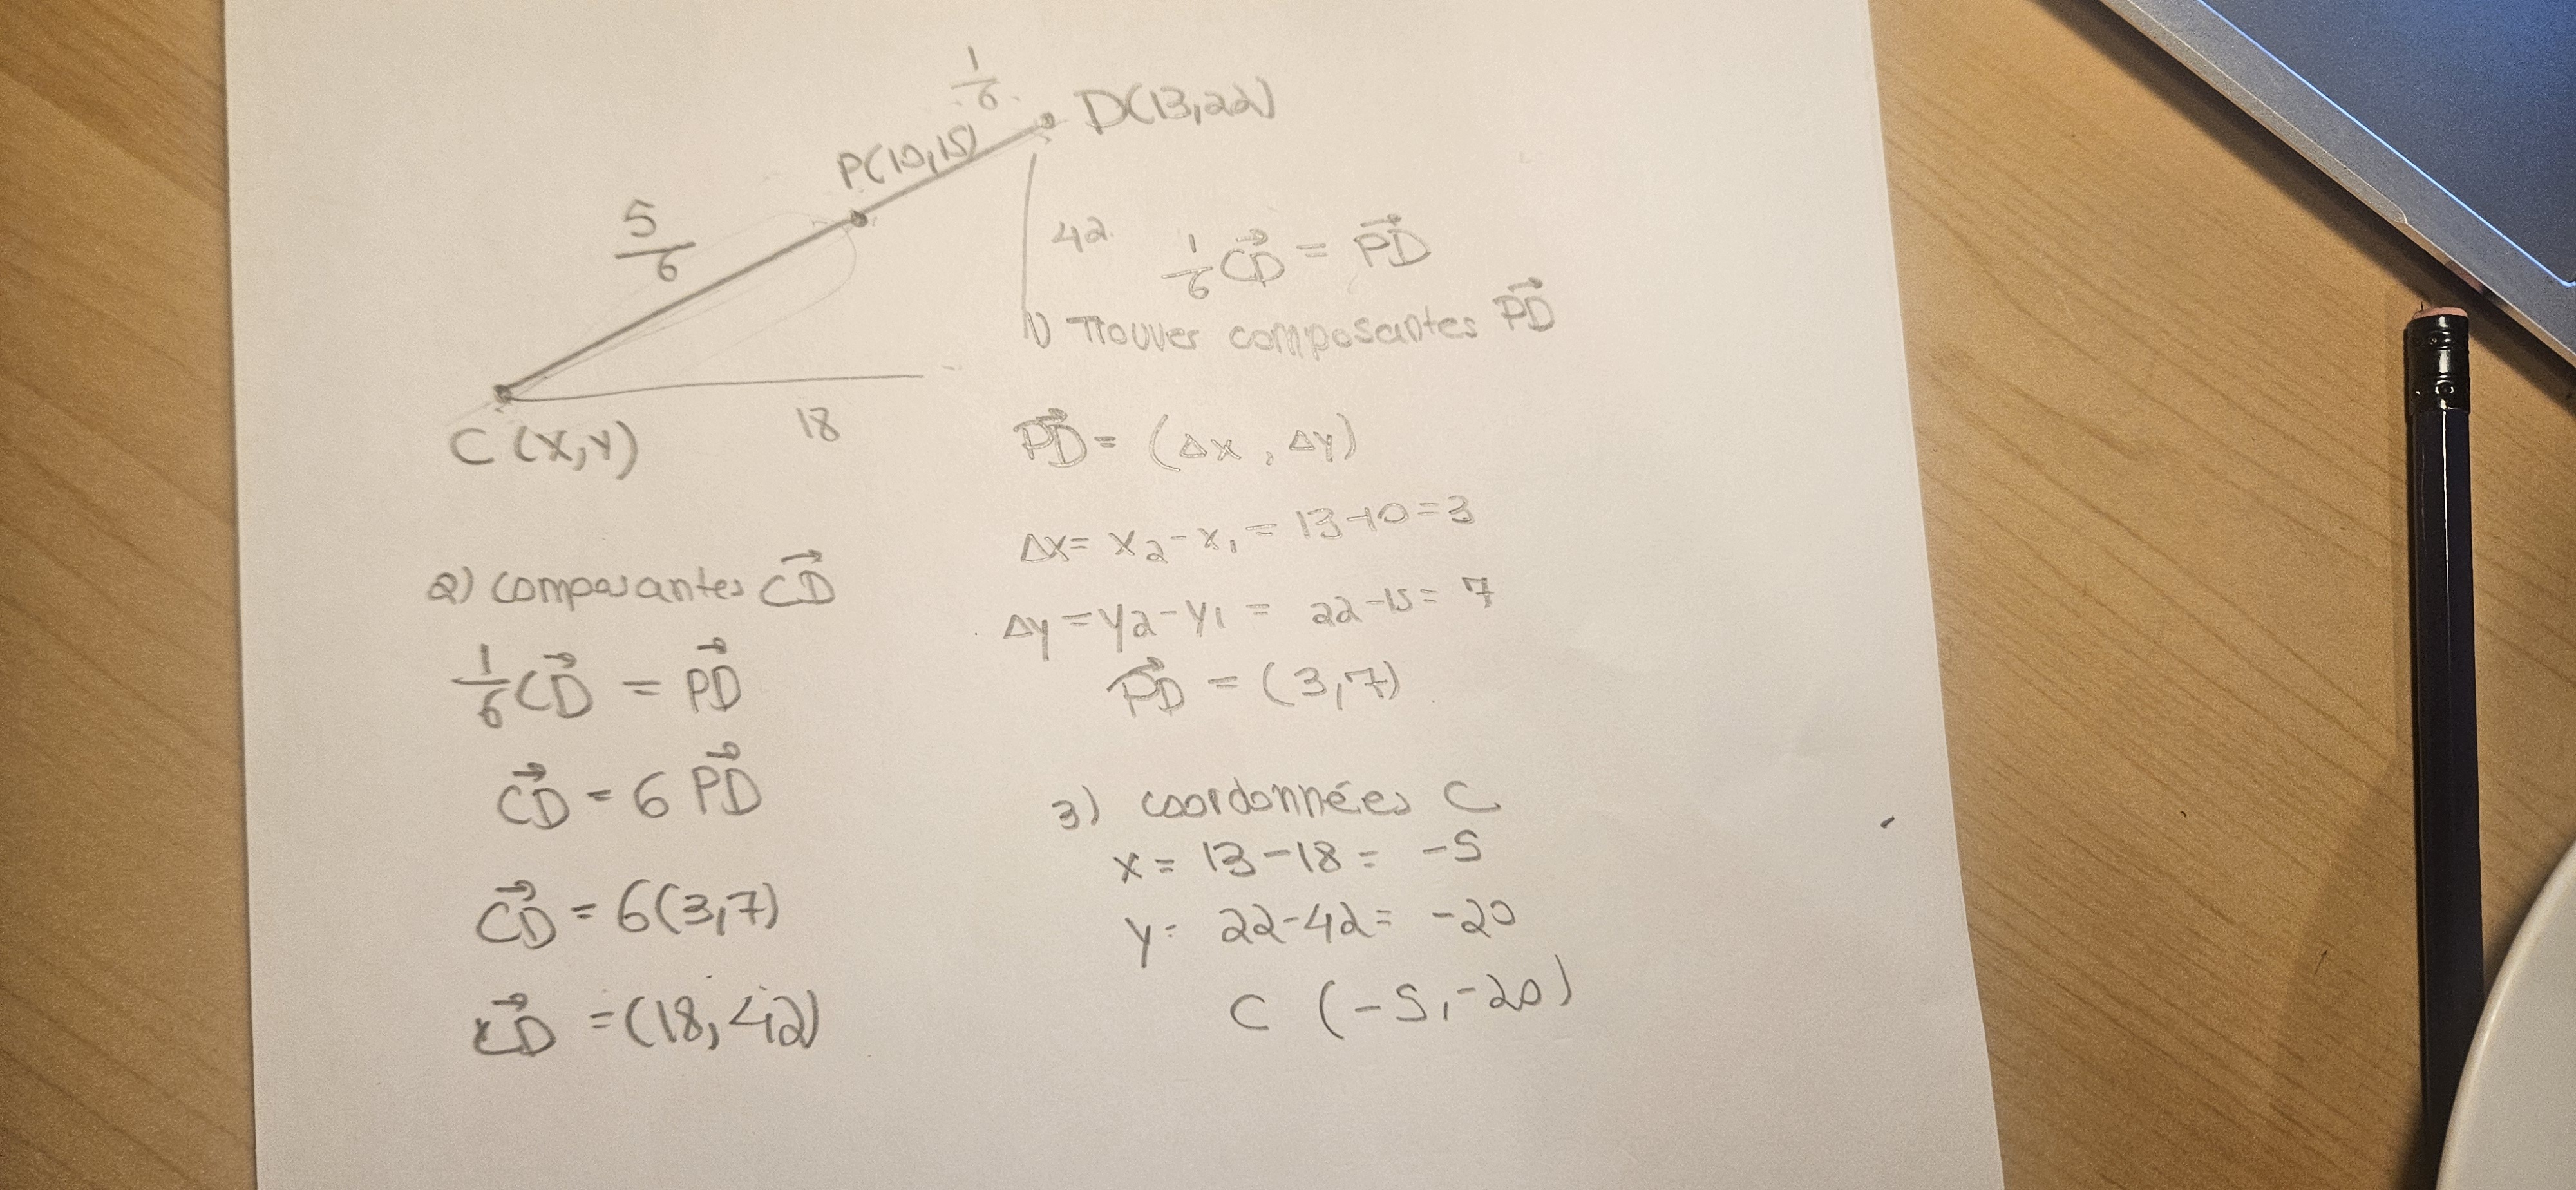 1/6
D(13,22)
P(10,15)
5/6
42
C (x,y)
18
1/6 CD⃗ = PD⃗
1) Trouver composantes PD⃗
PD⃗ = (Δx, Δy)
Δx = x₂ - x₁ = 13-10=3
Δy = y₂ - y₁ = 22-15= 7
PD⃗ = (3,7)
2) composantes CD⃗
1/6 CD⃗ = PD⃗
CD⃗ = 6 PD⃗
CD⃗ = 6(3,7)
CD⃗ = (18,42)
3) coordonnées C
x = 13-18 = -5
y = 22-42 = -20
C (-5,-20)